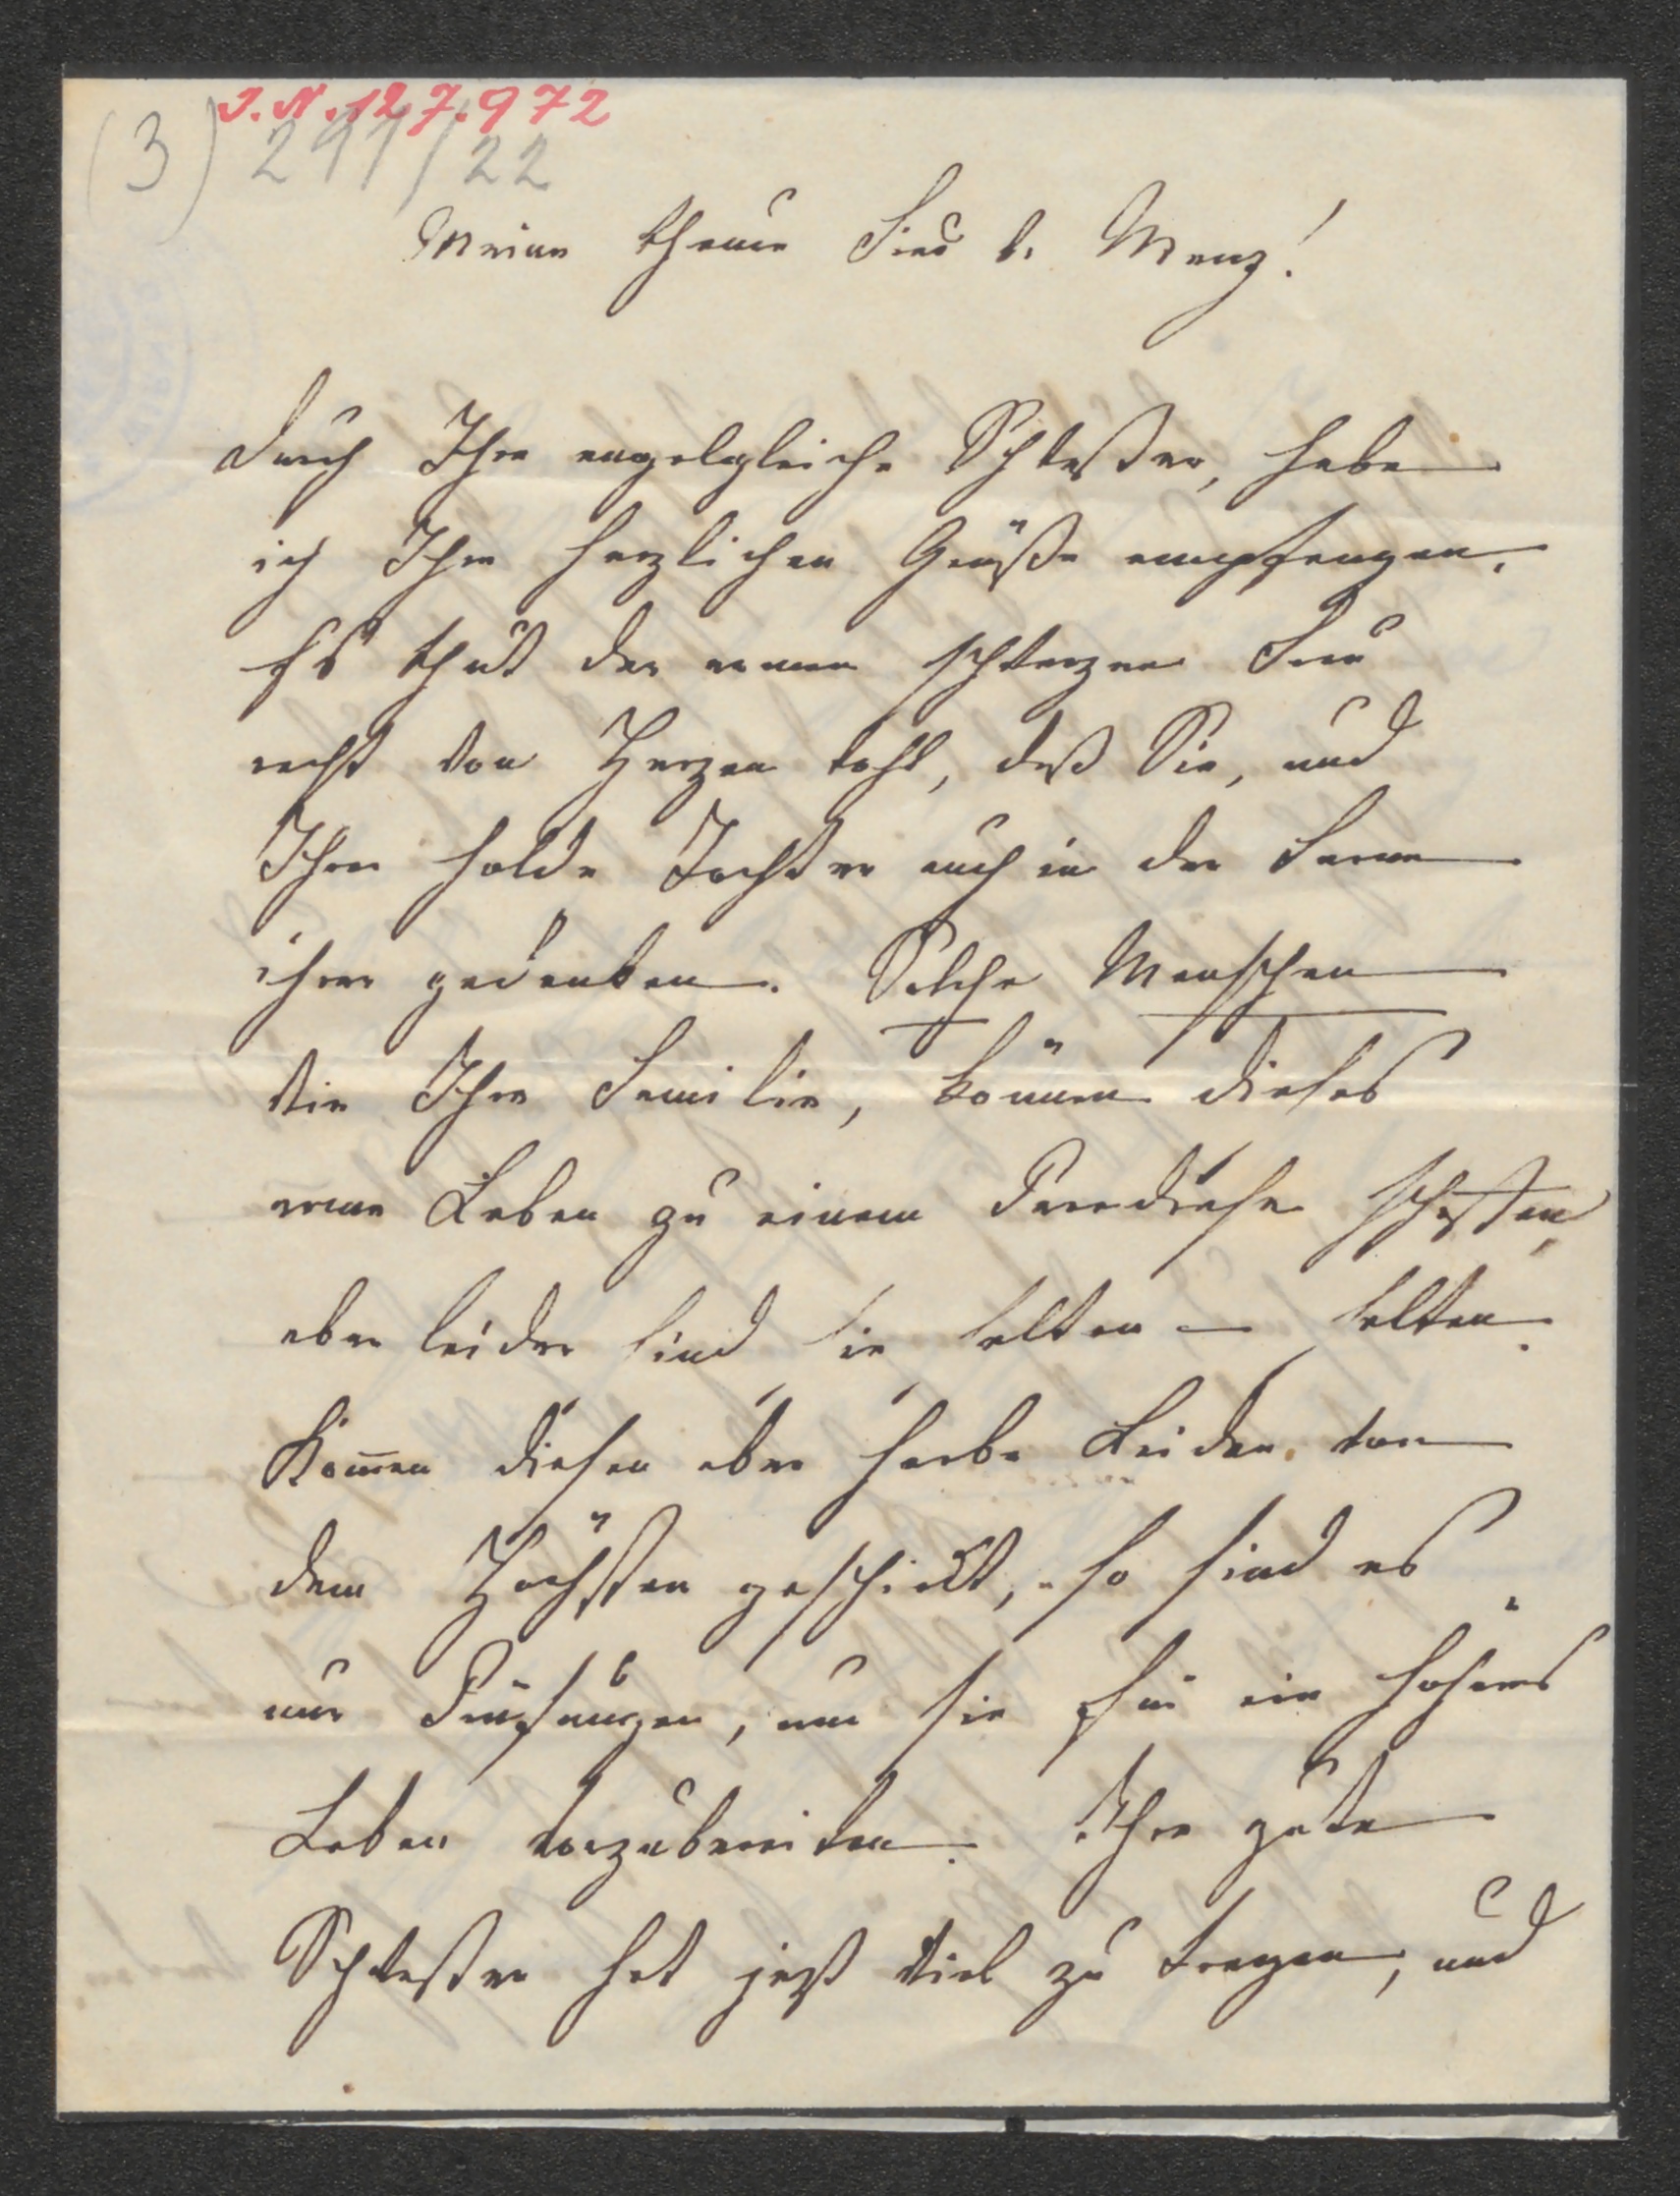 J.N. 127.972
(3) 291/22
Meine theure Frau v. Menz!
Durch Ihre engelgleiche Schwester, habe
ich Ihre herzlichen Grüße empfangen.
Es thut der armen schwarzen Frau
recht von Herzen wohl, daß Sie, und
Ihre holde Tochter auch in der Ferne
ihrer gedenken. Solche Menschen
wie Ihre Familie, können dieses
arme Leben zu einem Paradiese schaffen,
aber leider sind sie selten – selten.
Kom̅en diesen aber herbe Leiden von
dem Höchsten geschickt, so sind es
nur Prüfungen, um sie für ein höheres
Leben vorzubereiten. Ihre gute
Schwester hat jezt viel zu tragen, und